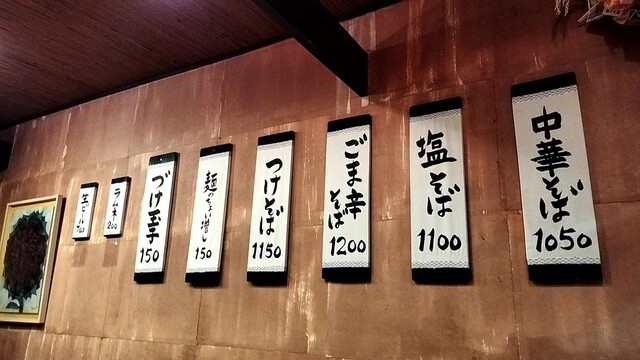 中華そば
1050
塩そば
1100
ごま辛
そば
1200
つけそば
1150
麺のさい増し
150
づけ玉子
150
ラムネ
200
生ビール
700